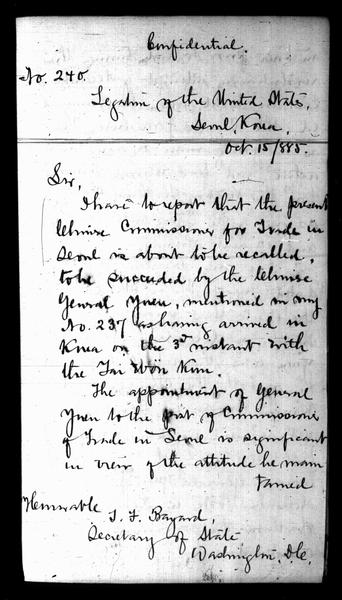 Confidential.
No. 240.
Legation of the United States,
Seoul, Korea,
Oct. 15/885.
Sir,
I have to report that the present
Chinese Commissioner for Trade in
Seoul is about to be recalled,
to be succeeded by the Chinese
General Yuen, mentioned in my
No. 237 as having arrived in
Korea on the 3rd instant with
the Tai Wön Kun.
The appointment of General
Yuen to the post of Commissioner
of Trade in Seoul is significant
in view of the attitude he main
tained
Honorable
T. F. Bayard,
Secretary of State
Washington, D.C.